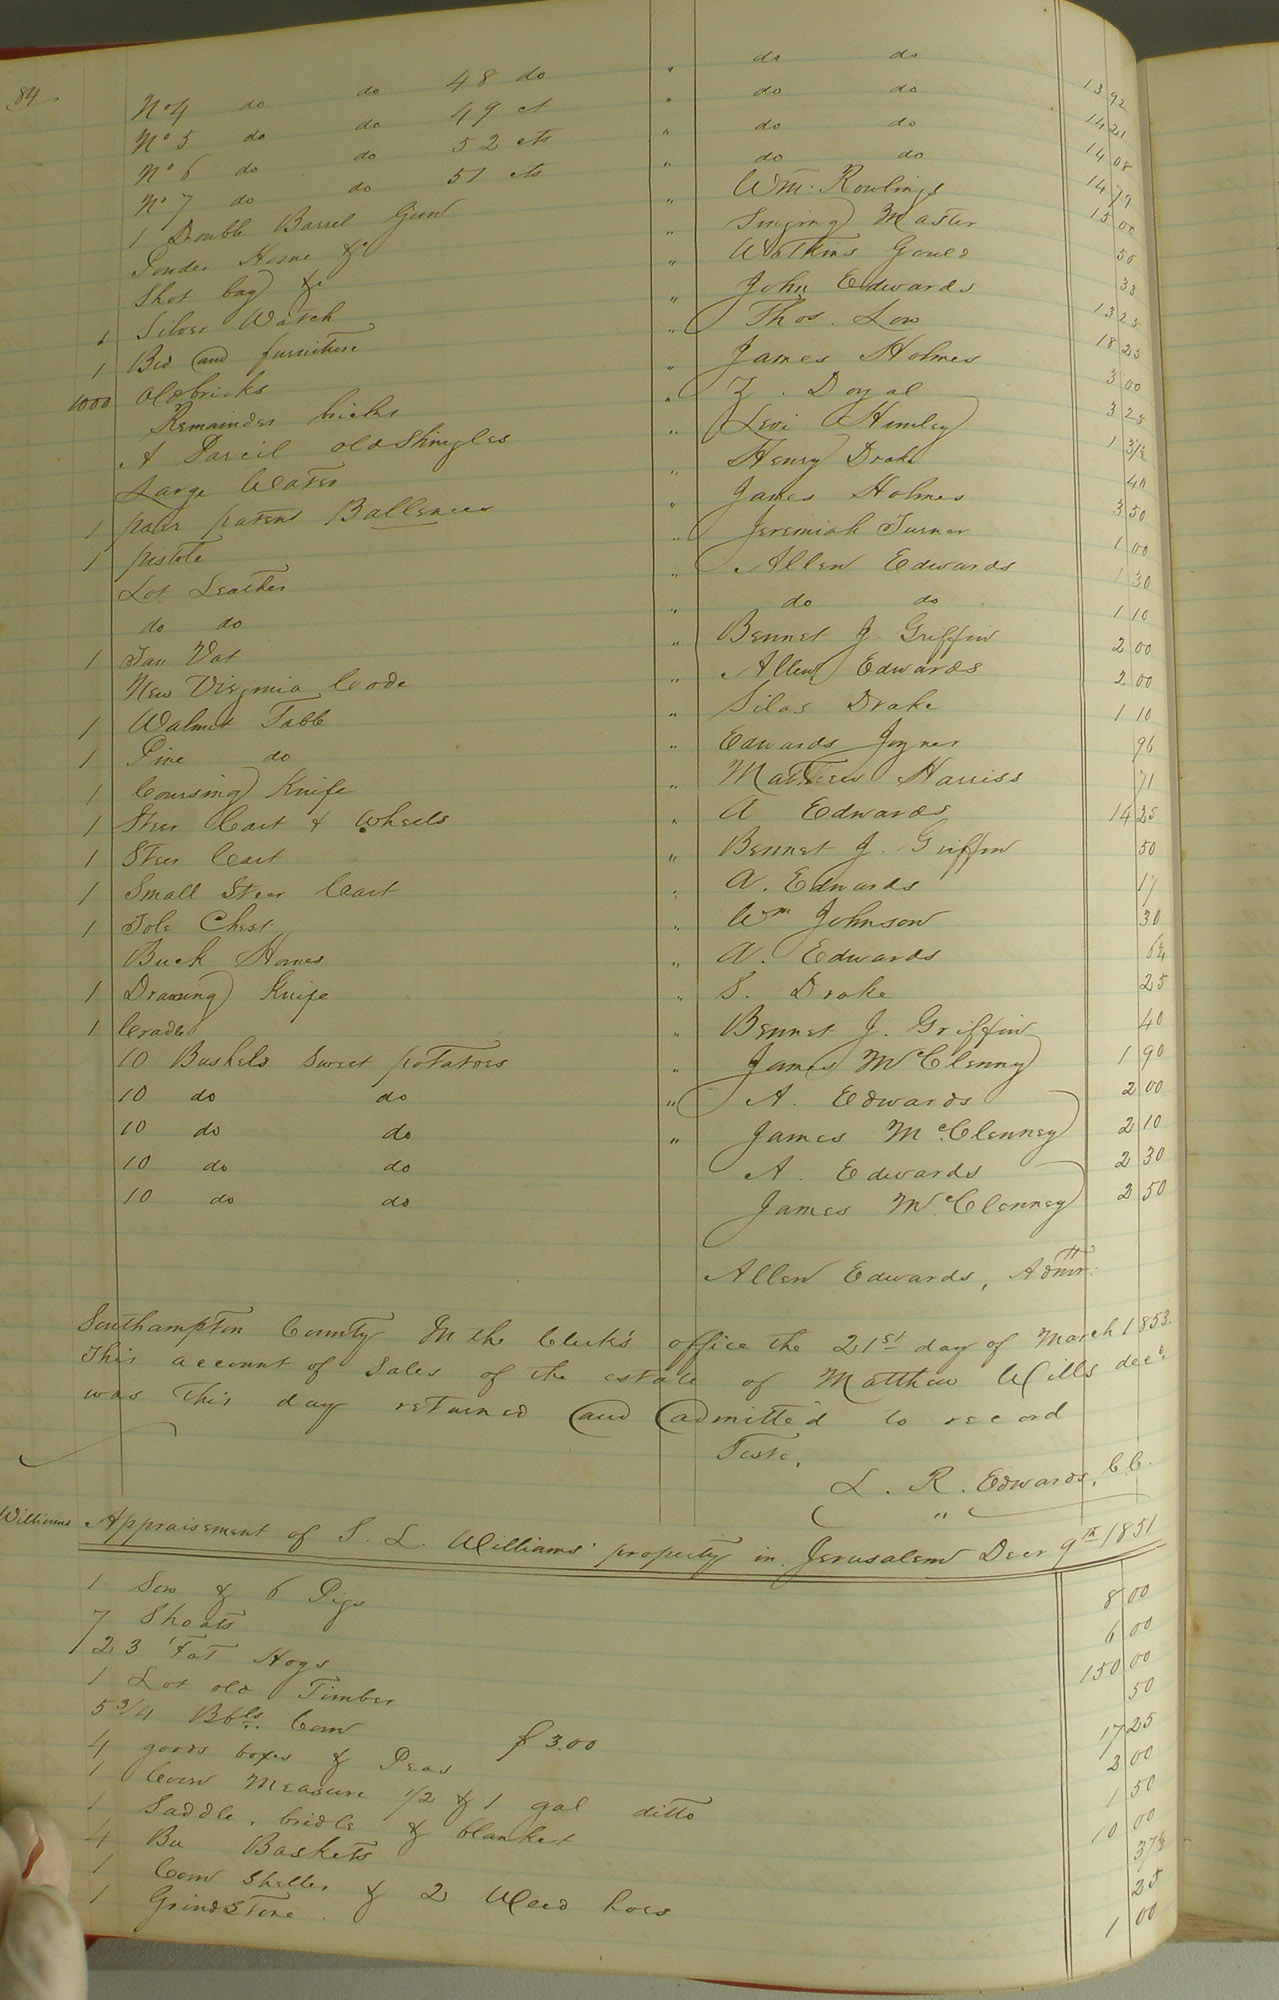 84
No 4 do do 48 do " do do 13 92
No 5 do do 49 ct " do do 14 21
No 6 do do 52 cts " do do 14 08
No 7 do do 51 cts " do do 14 79
1 Double Barrel Gun " Wm. Rowlings 15 00
Powder Horne &c " Singing Master 50
Shot bag &c " Watkins Gould 33
1 Silver Watch " John Edwards 13 25
1 Bed and furniture " Thos. Low 18 25
1000 Old bricks " James Holmes 3 00
Remainder bricks " Z. Doyal 3 25
A Parcil old Shingles " Levi Humley 1 31¼
Large Water " Henry Drake 40
1 pair patent Ballences " James Holmes 3 50
1 pistole " Jeremiah Turner 1 00
Lot Leather " Allen Edwards 1 30
do do " do do 1 10
1 Tan Vat " Bennet J. Griffin 2 00
New Virginia Code " Allen Edwards 2 00
1 Walnut Table " Silas Drake 1 10
1 Pine do " Edwards Joyner 96
1 Coursing Knife " Matthew Harriss 71
1 Steer Cart & Wheels " A Edwards 14 25
1 Steer Cart " Bennet J. Griffin 50
1 Small Steer Cart " A. Edwards 17
1 Tole Chest " Wm Johnson 30
Buck Hornes " A. Edwards 6¼
1 Drawing Knife " S. Drake 25
1 Cradle " Bennet J. Griffin 40
10 Bushels Sweet potatoes " James McClenny 1 90
10 do do " A. Edwards 2 00
10 do do " James McClenney 2 10
10 do do A. Edwards 2 30
10 do do James McClenney 2 50
Allen Edwards, Admr.
Southampton County In the Clerk's office the 21st day of March 1853.
This account of Sales of the estate of Matthew Wills decd.
was this day returned and admitted to record
Teste,
L. R. Edwards, C.C.
Williams Appraisement of S. L. Williams' property in Jerusalem Decr 9th 1851
1 Sow & 6 Pigs 8 00
7 Shoats 6 00
23 Fat Hogs 150 00
1 Lot old Timber 50
5 3/4 Bbls. Corn $ 3.00 17 25
4 goods boxes & Peas 2 00
1 Corn Measure 1/2 & 1 gal ditto 1 50
1 Saddle, bridle & blanket 10 00
4 Bu Baskets 37½
1 Corn Sheller & 2 Weed hoes 25
1 GrindStone. 1 00